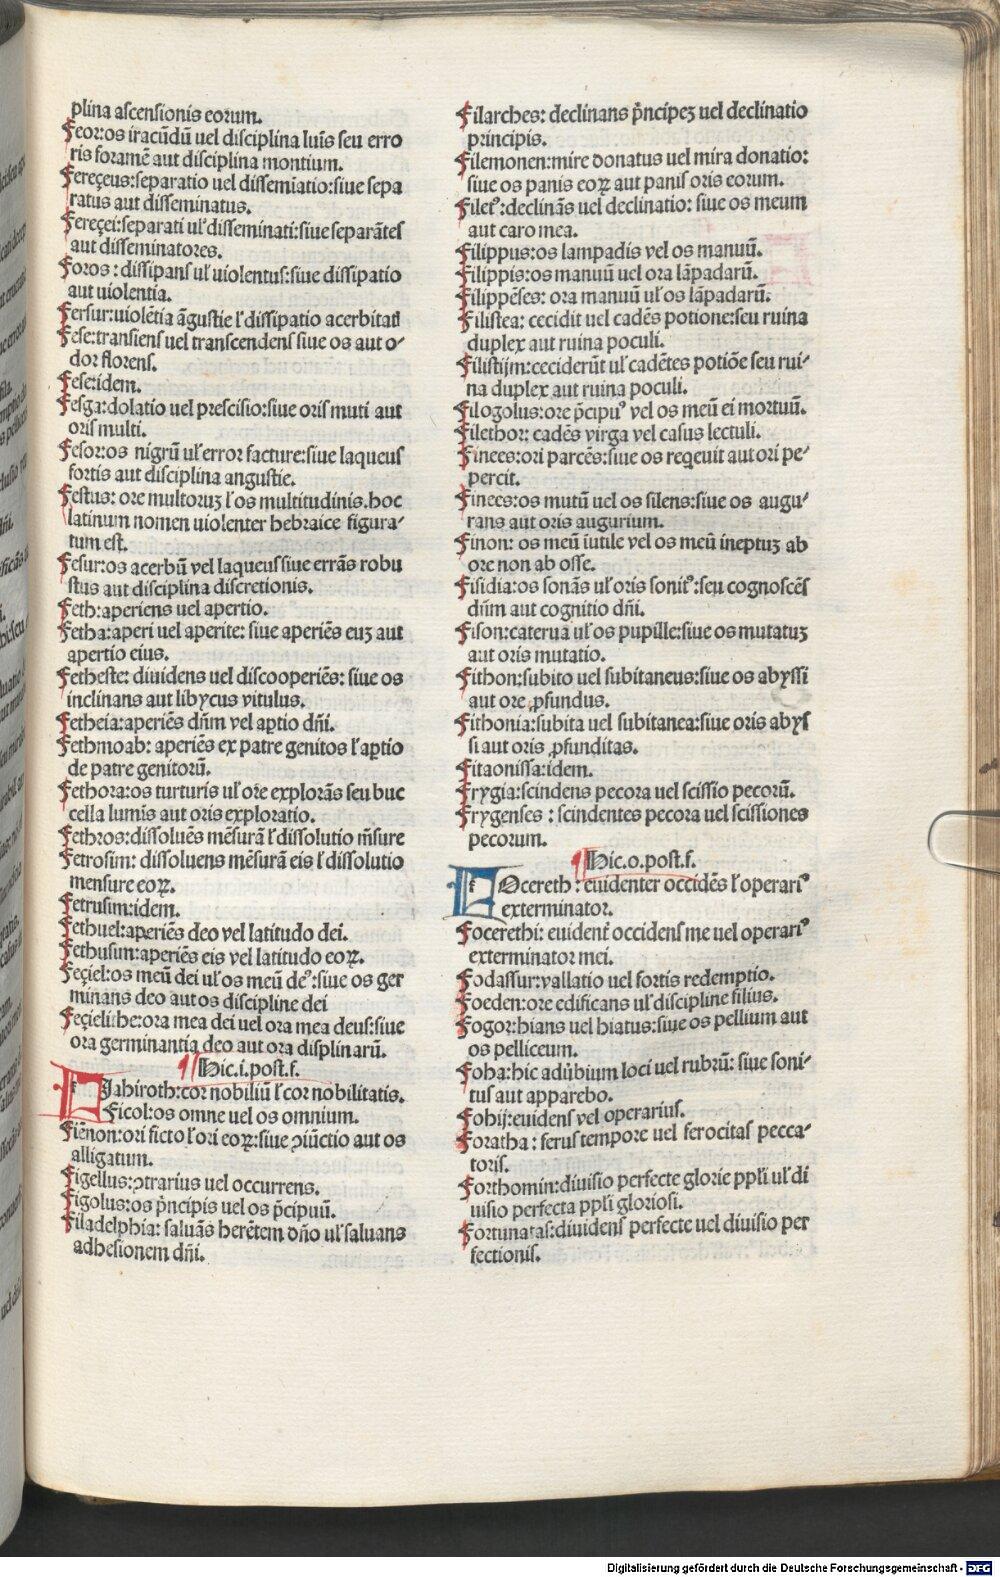 plina ascensionis eorum.
Feor:os iracūdū uel disciplina luīs seu erro
ris foramē aut disciplina montium.
Fereçeus:separatio uel dissemiatio:siue sepa
ratus aut disseminatus.
Fereçei:separati ul' disseminati:siue separātes
aut disseminatores.
Foros : dissipans ul' uiolentus:siue dissipatio
aut uiolentia.
Fersur:uiolētia āgustie l' dissipatio acerbitati
Fese:transiens uel transcendens siue os aut o-
dor florens.
Fese:idem.
Fesga:dolatio uel prescisio:siue oris muti aut
oris multi.
Fesor:os nigrū ul' error facture:siue laqueus
fortis aut disciplina angustie.
Festus: ore multoruʒ l' os multitudinis.hoc
latinum nomen uiolenter hebraice figura-
tum est.
Fesur:os acerbū vel laqueus siue errās robu
stus aut disciplina discretionis.
Feth:aperiens uel apertio.
Fetha:aperi uel aperite: siue aperiēs euʒ aut
apertio eius.
Fetheste: diuidens uel discooperiēs: siue os
inclinans aut libycus vitulus.
Fetheia:aperiēs dn̄m vel aꝑtio dn̄i.
Fethmoab: aperiēs ex patre genitos l' aꝑtio
de patre genitorū.
Fethora:os turturis ul' ore explorās seu buc
cella lumīs aut oris exploratio.
Fethros:dissoluēs mēsurā l' dissolutio m̄sure
Fetrosim: dissoluens mēsurā eis l' dissolutio
mensure eoꝝ.
Fetrusim:idem.
Fethuel:aperiēs deo vel latitudo dei.
Fethusim:aperiēs eis vel latitudo eoꝝ.
Feçiel:os meū dei ul' os meū deꝰ:siue os ger
minans deo aut os discipline dei
Feçielithe:ora mea dei uel ora mea deus:siue
ora germinantia deo aut ora displinarū.
¶ Hic.i.post.f.
FIahiroth:cor nobiliū l' cor nobilitatis.
Ficol:os omne uel os omnium.
Fiēnon:ori ficto l' ori eoꝝ:siue ꝯiūctio aut os
alligatum.
Figellus:ꝯtrarius vel occurrens.
Figolus:os p̄ncipis uel os p̄cipuū.
Filadelphia: saluās herētem dn̄o ul' saluans
adhesionem dn̄i.
Filarches: declinans p̄ncipeʒ uel declinatio
principis.
Filemonen:mire donatus uel mira donatio:
siue os panis eoꝝ aut panis oris eorum.
Filetꝰ:declināns uel declinatio: siue os meum
aut caro mea.
Filippus:os lampadis vel os manuū.
Filippis:os manuū uel ora lāpadarū.
Filippēses: ora manuū ul' os lāpadarū.
Filistea: cecidit uel cadēs potione:seu ruina
duplex aut ruina poculi.
Filistijm:ceciderūt ul' cadētes potiōe seu rui-
na duplex aut ruina poculi.
Filogolus:ore p̄cipuꝰ vel os meū ei mortuū.
Filethor: cadēs virga vel casus lectuli.
Finees:ori parcēs:siue os reqeuit aut ori pe-
percit.
Finees:os mutū uel os silens:siue os augu-
rans aut oris augurium.
Finon: os meū īutile vel os meū ineptuʒ ab
ore non ab osse.
Fisidia:os sonās ul' oris sonitꝰ:seu cognoscēs
dn̄m aut cognitio dn̄i.
Fison:caterua ul' os pupille:siue os mutatuʒ
aut oris mutatio.
Fithon:subito uel subitaneus:siue os abyssi
aut ore ꝓfundus.
Fithonia:subita uel subitanea:siue oris abys
si aut oris ꝓfunditas.
Fitaonissa:idem.
Frygia:scindens pecora uel scissio pecorū.
Frygenses : scindentes pecora uel scissiones
pecorum.
¶ Hic.o.post.f.
FOcereth : euidenter occidēs l' operariꝰ
exterminator.
Focerethi: euident̄ occidens me uel operariꝰ
exterminator mei.
Fodassur:vallatio uel fortis redemptio.
Foeden:ore edificans ul' discipline filius.
Fogor:hians uel hiatus:siue os pellium aut
os pelliceum.
Foha:hic adūbium loci uel rubrū: siue soni-
tus aut apparebo.
Fohij:euidens vel operarius.
Foratha : ferus tempore uel ferocitas pecca-
toris.
Forthomin:diuisio perfecte glorie pp̄li ul' di
uisio perfecta pp̄li gloriosi.
Fortunatas:diuidens perfecte uel diuisio per
fectionis.
Digitalisierung gefördert durch die Deutsche Forschungsgemeinschaft - DFG